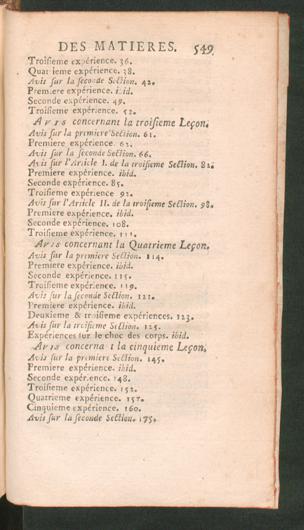 DES MATIERES. 549
Troisieme expérience. 36.
Quatrieme expérience. 38.
Avis sur la seconde Section. 42.
Premiere expérience. ibid.
Seconde expérience. 49.
Troisieme expérience. 52.
AVIS concernant la troisieme Leçon.
Avis sur la premiere Section. 61.
Premiere expérience. 62.
Avis sur la seconde Section. 66.
Avis sur l'Article I. de la troisieme Section. 82.
Premiere expérience. ibid.
Seconde expérience. 85.
Troisieme expérience 92.
Avis sur l'Article II. de la troisieme Section. 98.
Premiere expérience. ibid.
Seconde expérience. 108.
Troisieme expérience. 111.
AVIS concernant la Quatrieme Leçon.
Avis sur la premiere Section. 114.
Premiere expérience. ibid.
Seconde expérience. 115.
Troisieme expérience. 119.
Avis sur la seconde Section. 121.
Premiere expérience. ibid.
Deuxieme & troisieme expériences. 123.
Avis sur la troisieme Section. 125.
Expériences sur le choc des corps. ibid.
AVIS concerna t la cinquieme Leçon.
Avis sur la premiere Section. 145.
Premiere expérience. ibid.
Seconde expérience. 148.
Troisieme expérience. 152.
Quatrieme expérience. 157.
Cinquieme expérience. 160.
Avis sur la seconde Section. 175.